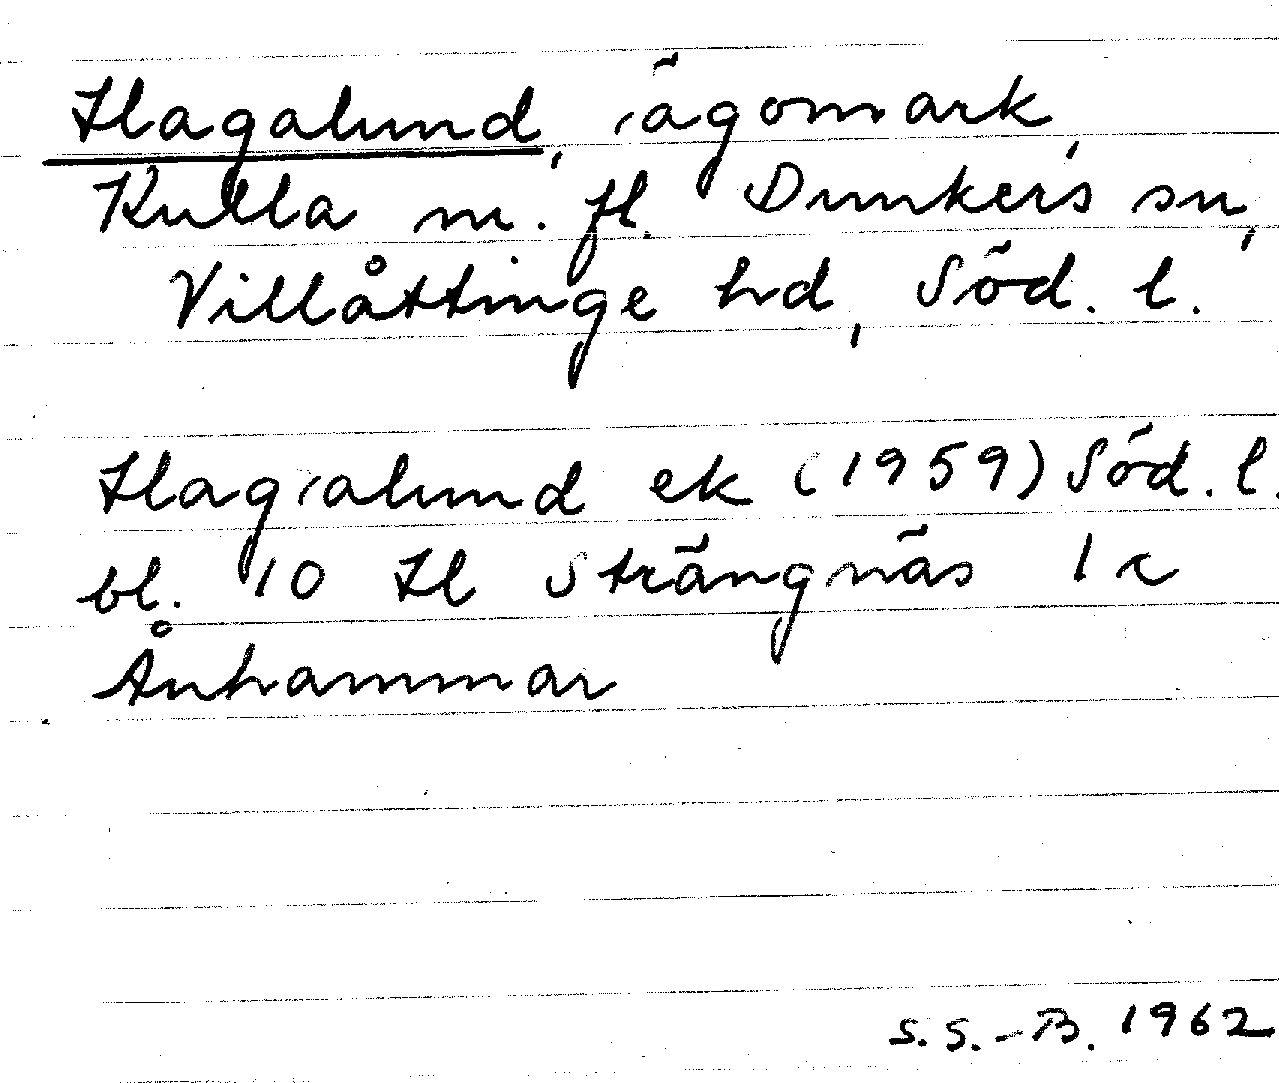 Hagalund, ägomark,
Kulla m. fl. Dunkers sn,
Villåttinge hd, Söd. l.
Hagalund ek (1959) Söd. l.
bl. 10 H Strängnäs 1 c
Ånhammar
S. S.-B. 1962